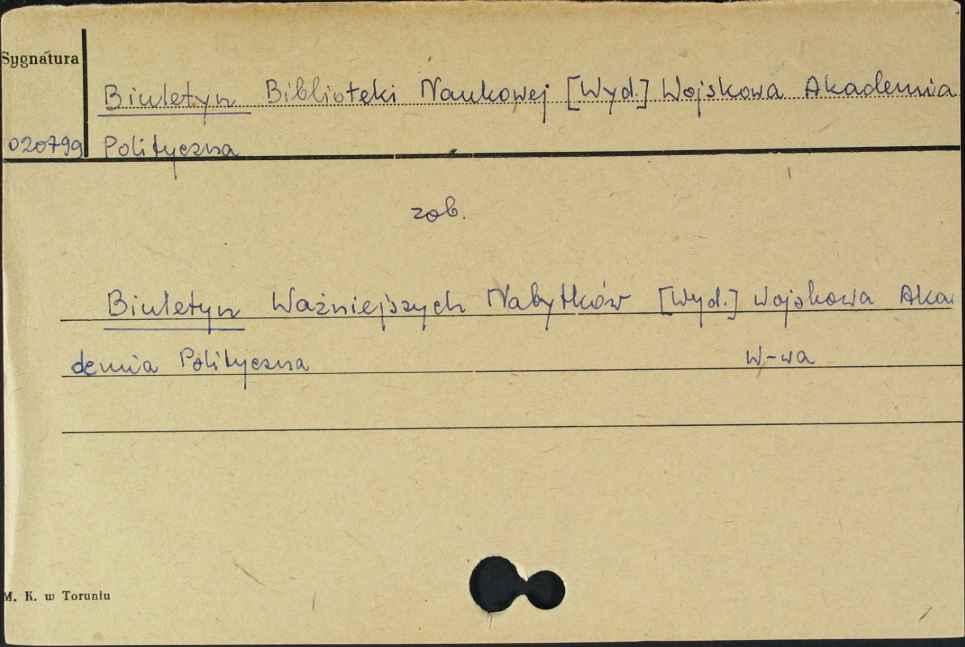 Sygnatura
Biuletyn Biblioteki Naukowej [Wyd.] Wojskowa Akademia
020799 Polityczna
zob.
Biuletyn Ważniejszych Nabytków [Wyd.] Wojskowa Aka
demia Polityczna W-wa
M. K. w Toruniu